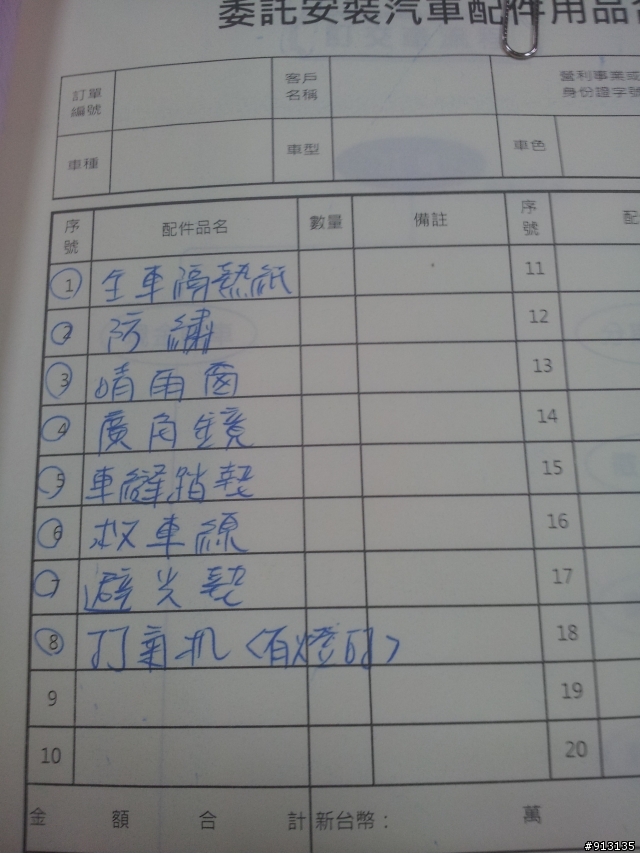 委託安裝汽車配件用品
訂單編號 客戶名稱 營利事業或身份證字號
車種 車型 車色
序號 配件品名 數量 備註 序號 配
1 全車隔熱紙 11
2 防繡 12
3 晴雨窗 13
4 廣角鏡 14
5 車縫踏墊 15
6 救車線 16
7 避光墊 17
8 打氣机<有燈的> 18
9 19
10 20
金額合計 新台幣： 萬
#913135